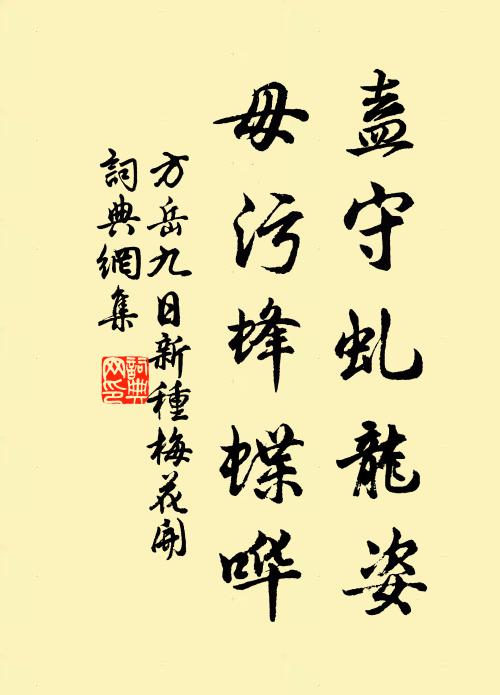 盍守虬龍姿
毋污蜂蝶哗
方岳九日新種梅花開
詞典網集
詞典网印